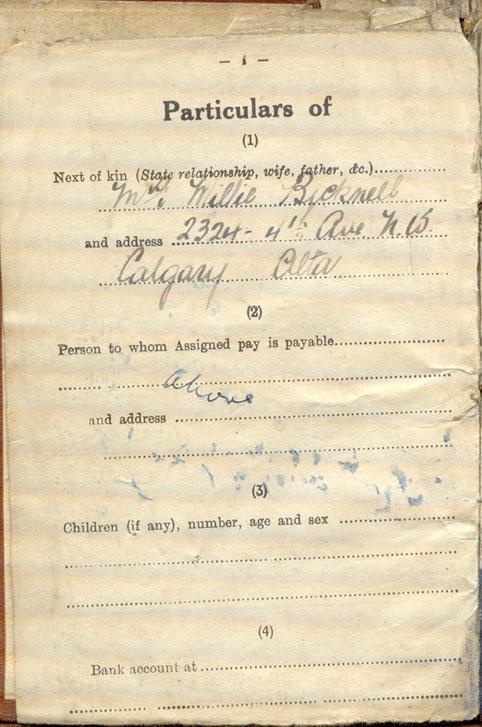 Particulars of
(1)
Next of kin (State relationship, wife, father, &c.)
Mrs. Willie Bicknell
and address 2324 - 4th Ave N.W.
Calgary Alta
(2)
Person to whom Assigned pay is payable
above
and address
(3)
Children (if any), number, age and sex
(4)
Bank account at